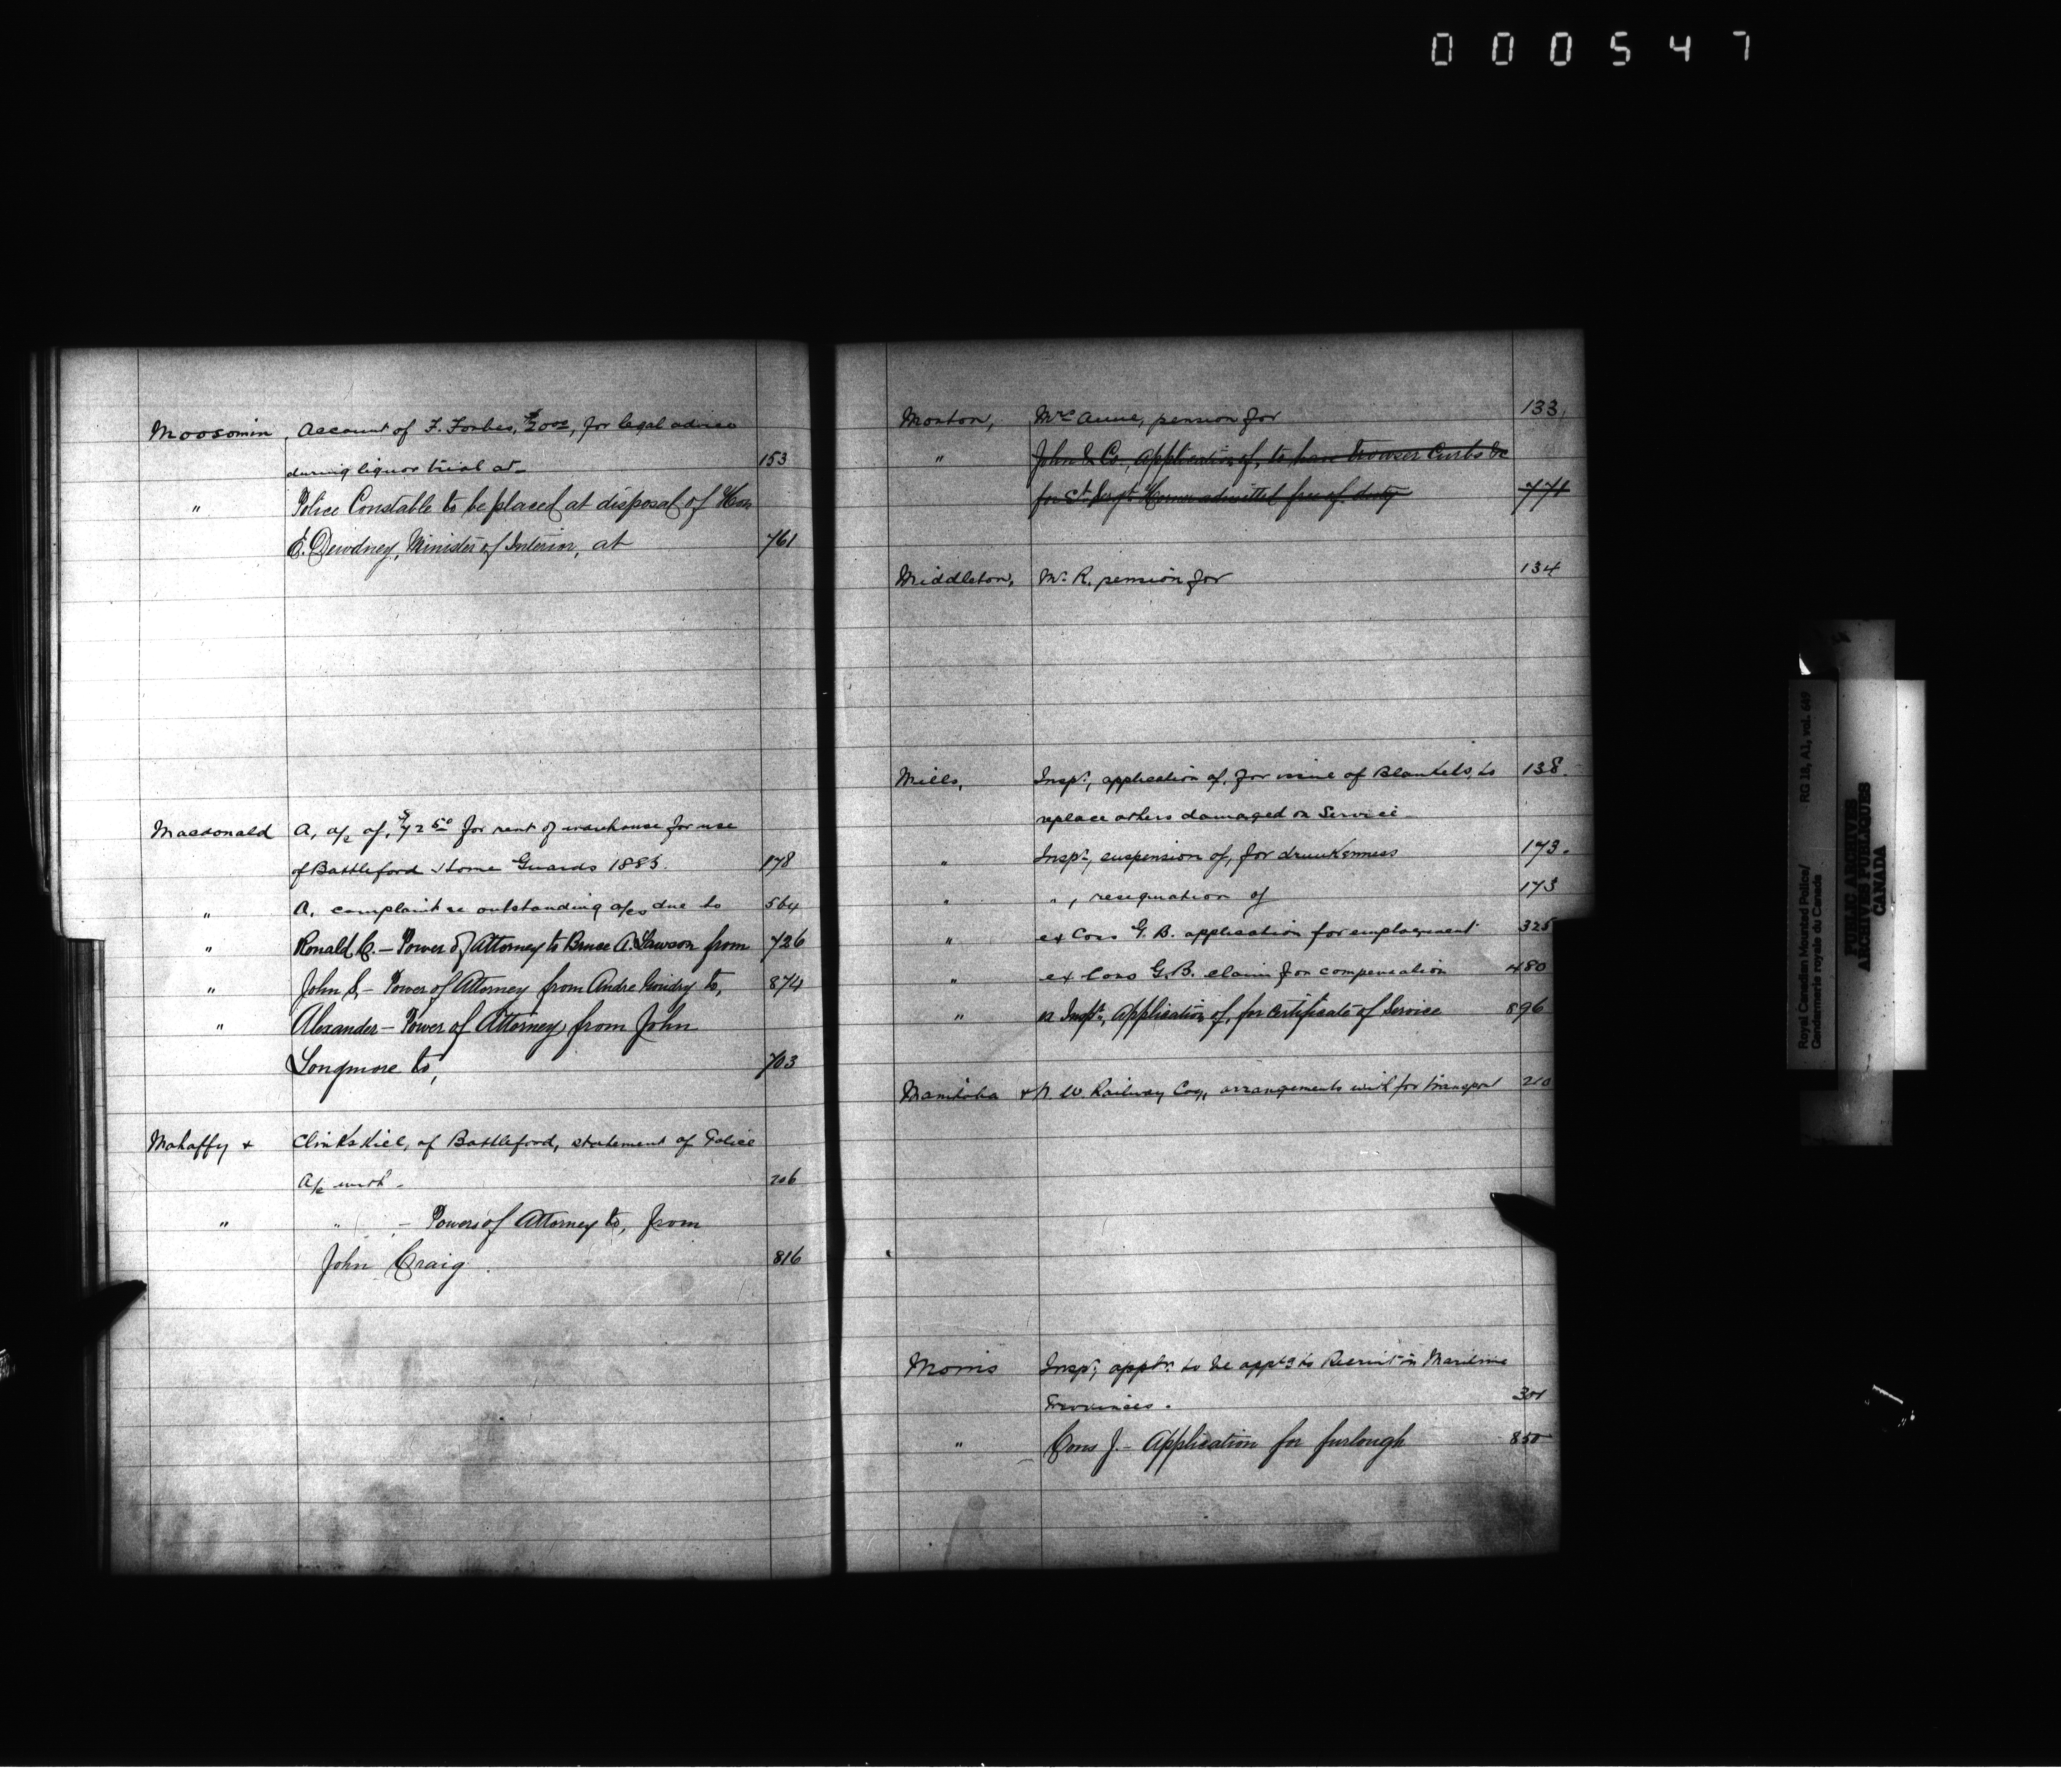 000547
Moosomin, Account of F. Forbes, $20.00, for legal advice
during liquor trial at 153
" Police Constable to be placed at disposal of Hon
E. Dewdney, Minister of Interior, at 761
Macdonald A, a/c of, $72.50 for rent of warehouse for use
of Battleford Home Guards 1885. 178
" A. complaint re outstanding a/cs due to 564
" Ronald C. – Power of Attorney to Bruce A. Lawson from 726
" John S. – Power of Attorney from Andre to, 874
" Alexander – Power of Attorney from John
Longmore to, 703
Mahaffy & Clinkskill, of Battleford, statement of Police
A/c with - 206
" " – Powers of Attorney to, from
John Craig. 816
Morton, Mrs Anne, pension for 133
" John & Co., application of, to have Trowser Curbs &c
for St. Sergt. Horner admitted free of duty 771
Middleton, Mr R. pension for 134
Mills, Inspr, application of, for issue of Blankets, to 138.
replace others damaged on Service -
" Inspr, suspension of, for drunkenness 173.
" ", resignation of 173
" ex Cons G. B. application for employment 325
" ex Cons G. B. claim for compensation 480
" ex Inspr., Application of, for certificate of Service 896
Manitoba & N. W. Railway Coy, arrangements with for transport 210
Morris Inspr, apptn. to be apptd to Recruit in Maritime
Provinces. 301
" Cons J. – Application for furlough 850
Royal Canadian Mounted Police/ RG 18, A1, vol. 649
Gendarmerie royale du Canada
PUBLIC ARCHIVES
ARCHIVES PUBLIQUES
CANADA